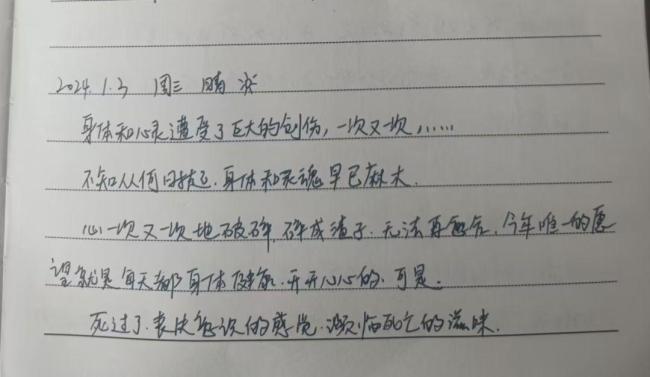 2024.1.3 周三 晴
身体和心灵遭受了巨大的创伤,一次又一次,……
不知从何时起,身体和灵魂早已麻木.
心一次又一次地破碎,碎成渣子.无法再愈合,今年唯一的愿
望就是每天都身体健康.开开心心的.可是.
死过了. 的感觉.濒临死亡的滋味.